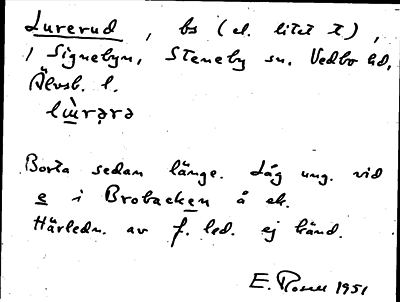 Lurerud, bs (el. litet t),
i Signebyn, Steneby sn. Vedbo hd,
Älvsb. l.
lɯ̀rərə
Borta sedan länge. Låg ung. vid
e i Brobacken å ek.
Härledn. av f. led. ej känd.
E. Rosell 1951